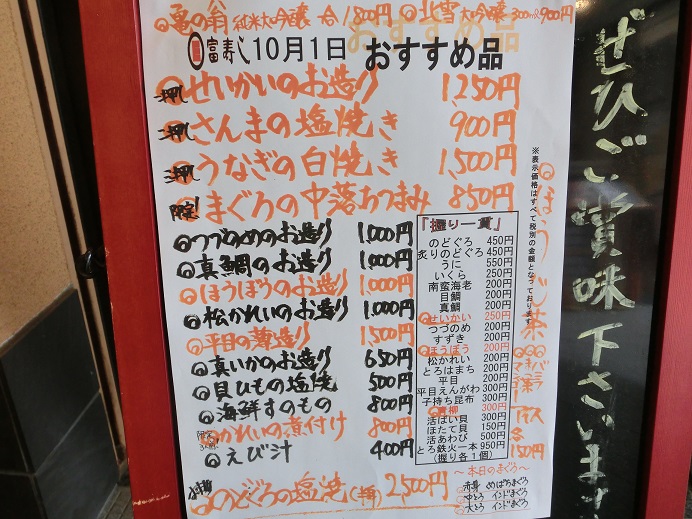 ◎亀の翁 純米大吟醸 合1,800円 ◎北雪大吟醸300ml900円
富寿し10月1日 おすすめ品
一押し ◎せいかいのお造り 1,250円
二押し ◎さんまの塩焼き 900円
三押し ◎うなぎの白焼き 1,500円
限定! まぐろの中落ちつまみ 850円
◎つづのめのお造り 1,000円
◎真鯛のお造り 1,000円
◎ほうぼうのお造り 1,000円
◎松かれいのお造り 1,000円
◎平目の薄造り 1,500円
◎真いかのお造り 650円
◎貝ひもの塩焼 500円
◎海鮮すのもの 800円
かれいの煮付け 800円
◎えび汁 400円
のどぐろの塩焼(半身) 2,500円
『握り一貫』
のどぐろ 450円
炙りのどぐろ 450円
うに 550円
いくら 250円
南蛮海老 200円
目鯛 200円
真鯛 200円
◎せいかい 250円
つづのめ 200円
すずき 200円
◎ほうぼう 200円
松かれい 200円
とろはまち 200円
平目 200円
平目えんがわ 300円
子持ち昆布 300円
◎青柳 300円
活ばい貝 300円
ほたて貝 150円
活あわび 500円
とろ鉄火一本 950円
(握り各1個)
～本日のまぐろ～
赤身 めばちまぐろ
中とろ インドまぐろ
大とろ インドまぐろ
※表示価格はすべて税別の金額となっております
◎ほうじ茶
アイス
合
150円
ぜひご賞味下さいませ